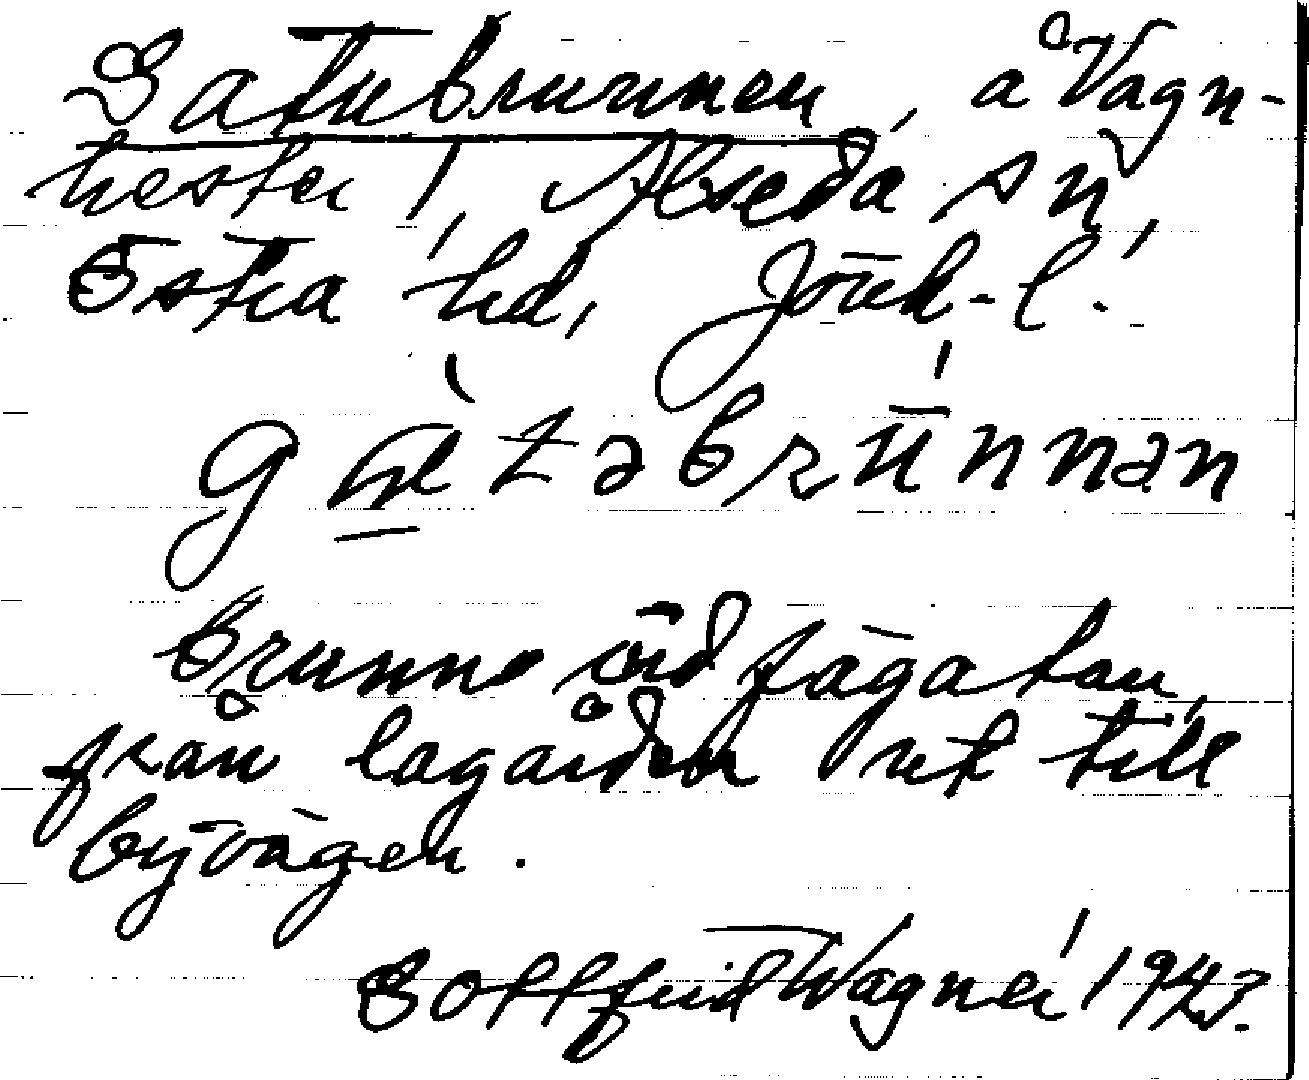 Gatubrunnen, å Vagn-
hester 1, Alseda sn,
Östra hd, Jönk-l.
gætəbrūnnən
brunn vid fägatan,
från lagården ut till
byvägen.
Gottfrid Wagner 1943.